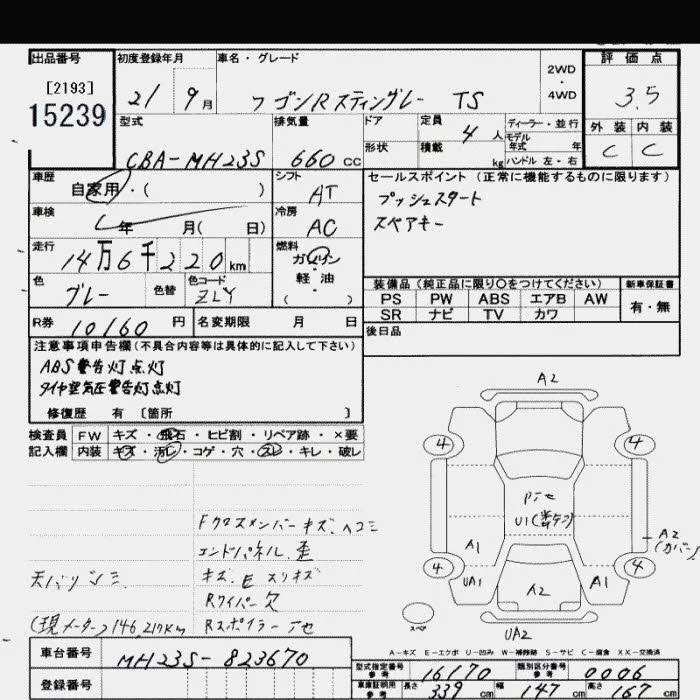 出品番号
[2193]
15239
初度登録年月
21 9月
車名・グレード
ワゴンRスティングレー TS
2WD
・
4WD
評価点
3.5
外装 内装
C C
型式
CBA-MH23S
排気量
660 cc
ドア
形状
定員 4人
積載 kg
ディーラー・並行
モデル
年式 年
ハンドル 左・右
車歴
自家用・( )
車検
年 月( 日)
走行
14万6千220km
色
グレー
色替
色コード
ZLY
シフト
AT
冷房
AC
燃料
ガソリン
軽・油
( )
セールスポイント(正常に機能するものに限ります)
プッシュスタート
スペアキー
装備品(純正品に限り○をつけてください)
PS PW ABS エアB AW
SR ナビ TV カワ
新車保証書
有・無
後日品
R券 10160円
名変期限 月 日
注意事項申告欄(不具合内容等は具体的に記入して下さい)
ABS警告灯点灯
タイヤ空気圧警告灯点灯
修復歴 有 〔箇所 〕
検査員
記入欄
FW キズ・飛石・ヒビ割・リペア跡・×要
内装 キズ・汚レ・コゲ・穴・スレ・キレ・破レ
Fクロスメンバーキズ、ヘコミ
エンドパネル、歪
キズ、E スリキズ
Rワイパー欠
(現メーター)146,217km
Rスポイラー
車台番号
MH23S-823670
登録番号
A2
4 4
U1
A1
A2
4 4
UA1
A2
A1
スペア
UA2
A-キズ E-エクボ U-凹み W-補修跡 S-サビ C-腐食 XX-交換済
型式指定番号
参考
16170
類別区分番号
参考
0006
車庫証明用
参考
長さ 339cm 幅 147cm 高さ 167cm